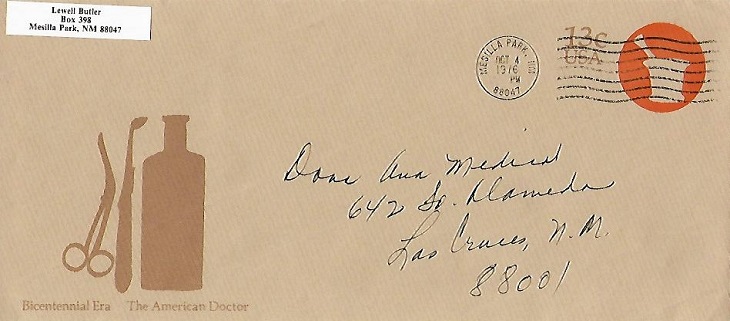 Lewell Butler
Box 398
Mesilla Park, NM 88047
MESILLA PARK, NM
OCT 4
1976
PM
88047
13c
USA
Dona Ana Medical
642 So. Alameda
Las Cruces, N.M.
88001
Bicentennial Era The American Doctor